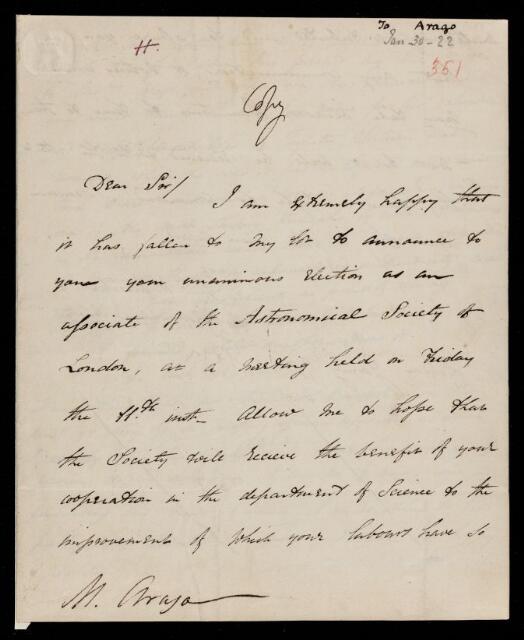 To Arago
H.
Jan 30 - 22
351
Copy
Dear Sir/ I am extremely happy that
it has fallen to my lot to announce to
you your unanimous Election as an
associate of the Astronomical Society of
London, at a meeting held on Friday
the 11th inst- Allow me to hope that
the Society will recieve the benefit of your
cooperation in the department of Science to the
improvement of which your labours have so
M. Arago